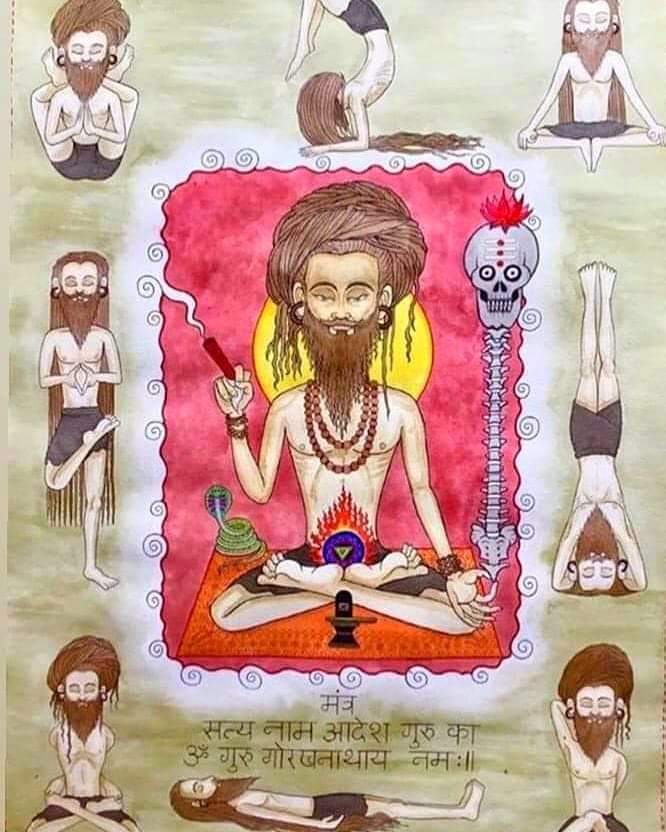 मंत्र
सत्य नाम आदेश गुरु का
ॐ गुरु गोरखनाथाय नमः॥